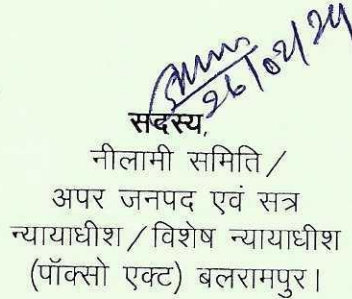 26/02/24
सदस्य,
नीलामी समिति/
अपर जनपद एवं सत्र
न्यायाधीश/विशेष न्यायाधीश
(पॉक्सो एक्ट) बलरामपुर।